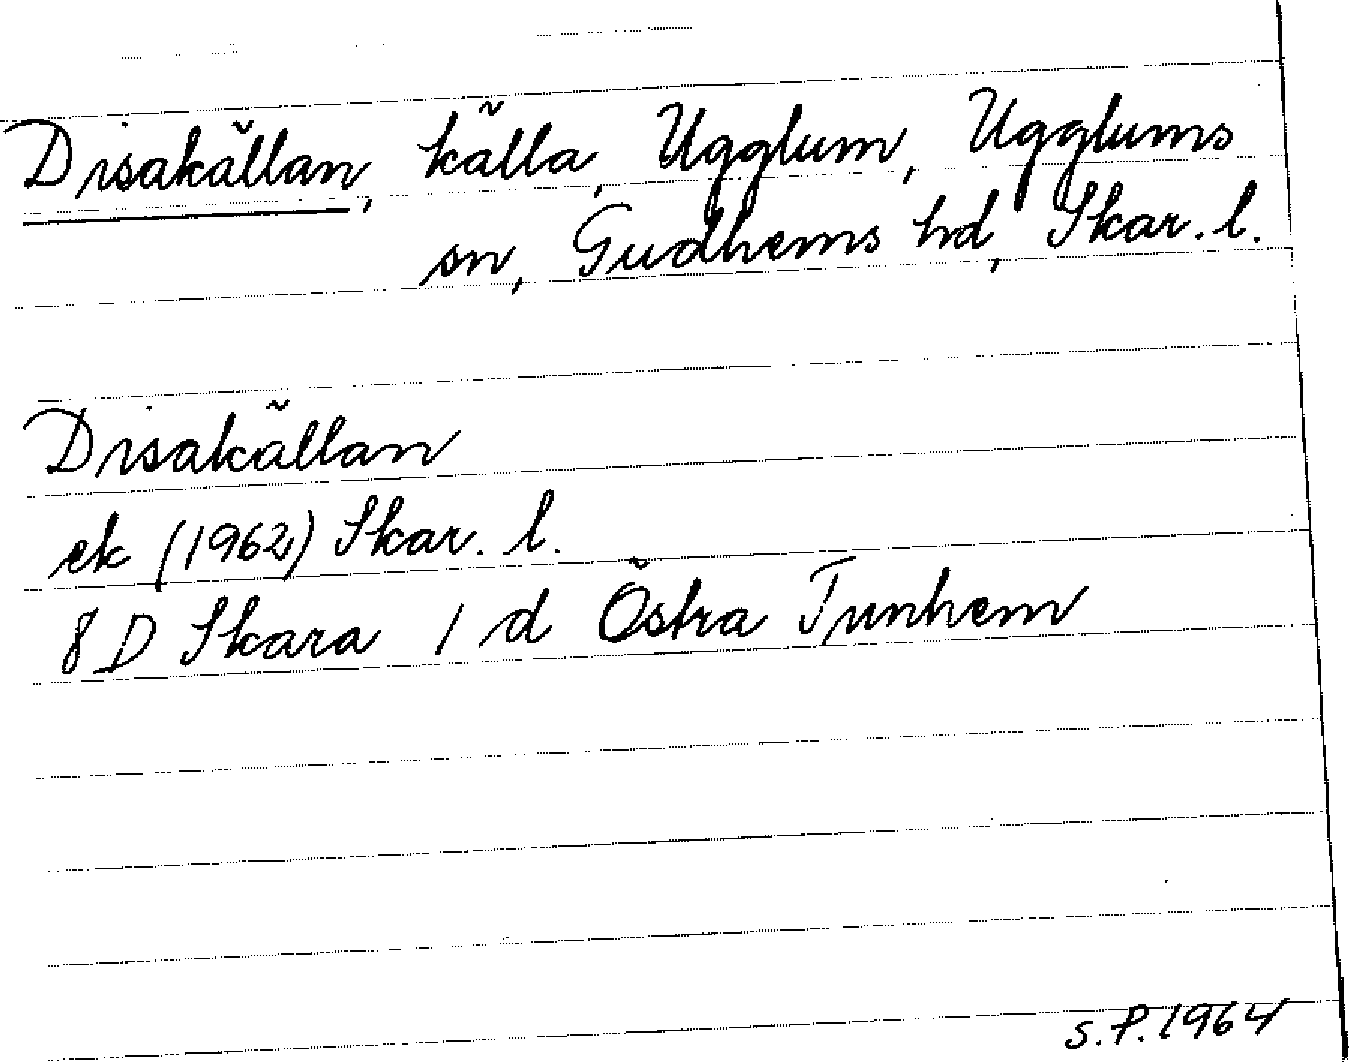 Disakällan, källa, Ugglum, Ugglums
sn, Gudhems hd, Skar. l.
Disakällan
ek (1962) Skar. l.
8 D Skara 1 d Östra Tunhem
S.P. 1964